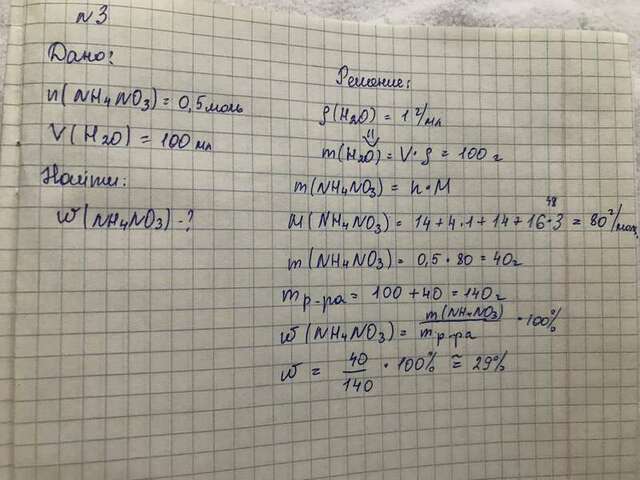 №3
Дано:
n(NH4NO3) = 0,5 моль
V(H2O) = 100 мл
Найти:
w(NH4NO3) - ?
Решение:
ρ(H2O) = 1 г/мл
⇓
m(H2O) = V · ρ = 100 г
m(NH4NO3) = n · M
M(NH4NO3) = 14 + 4·1 + 14 + 16·3 = 80 г/моль
48
m(NH4NO3) = 0,5 · 80 = 40 г
m р-ра = 100 + 40 = 140 г
w(NH4NO3) = m(NH4NO3) / m р-ра · 100%
w = 40 / 140 · 100% ≈ 29%